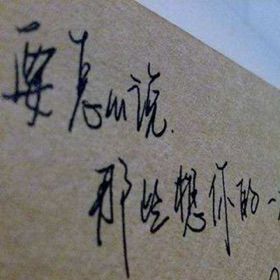 要怎么说.
那些想你的一